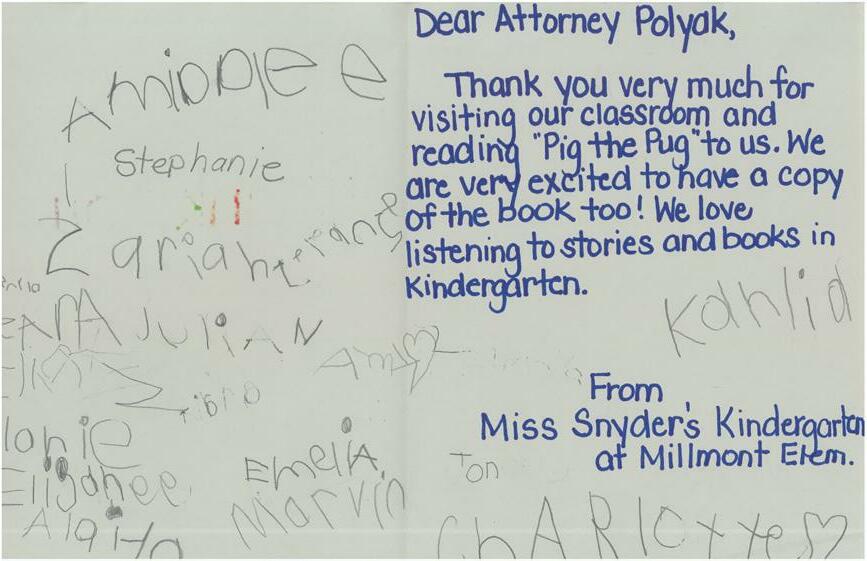 Dear Attorney Polyak,
Thank you very much for
visiting our classroom and
reading "Pig the Pug" to us. We
are very excited to have a copy
of the book too! We love
listening to stories and books in
Kindergarten.
From
Miss Snyder's Kindergarten
at Millmont Elem.
Stephanie
Zariah
JULIAN
Kahlid
EmeliA
Marvin
ChARloтте